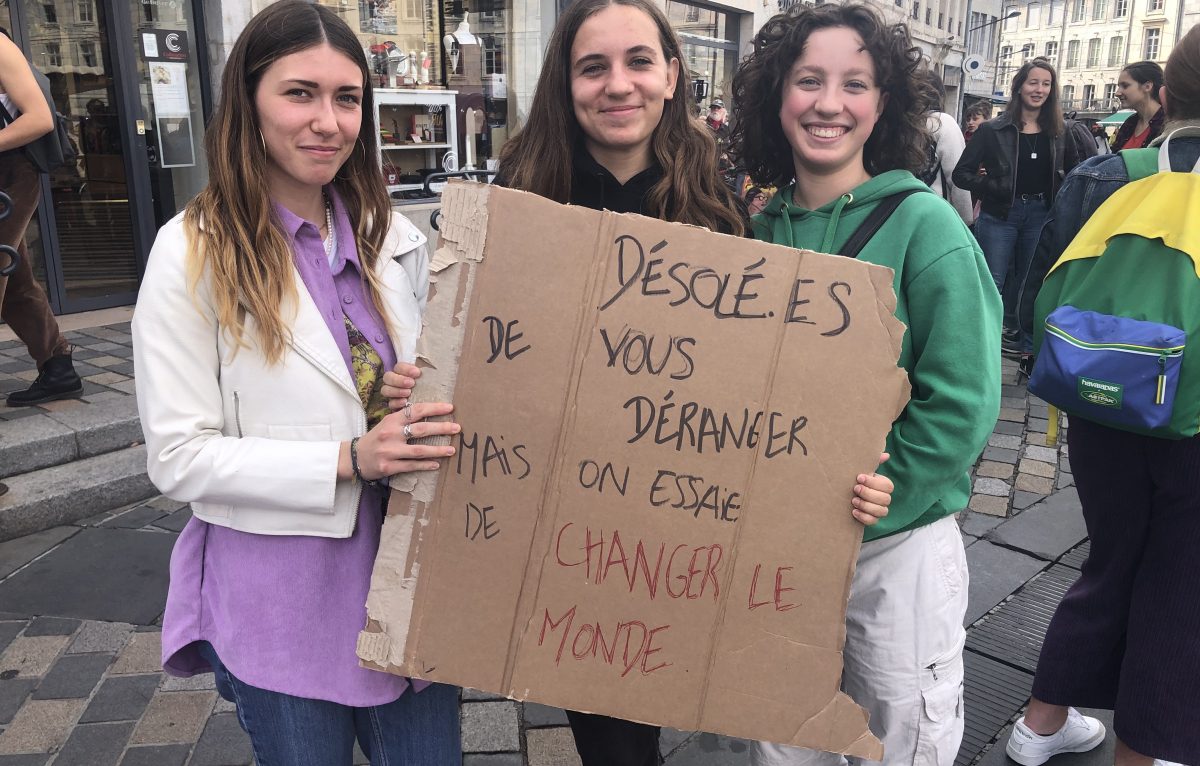 DÉSOLÉ.ES
DE VOUS
DÉRANGER
MAiS ON ESSAiE
DE CHANGER LE
MONDE.
havaianas
EASTPAK